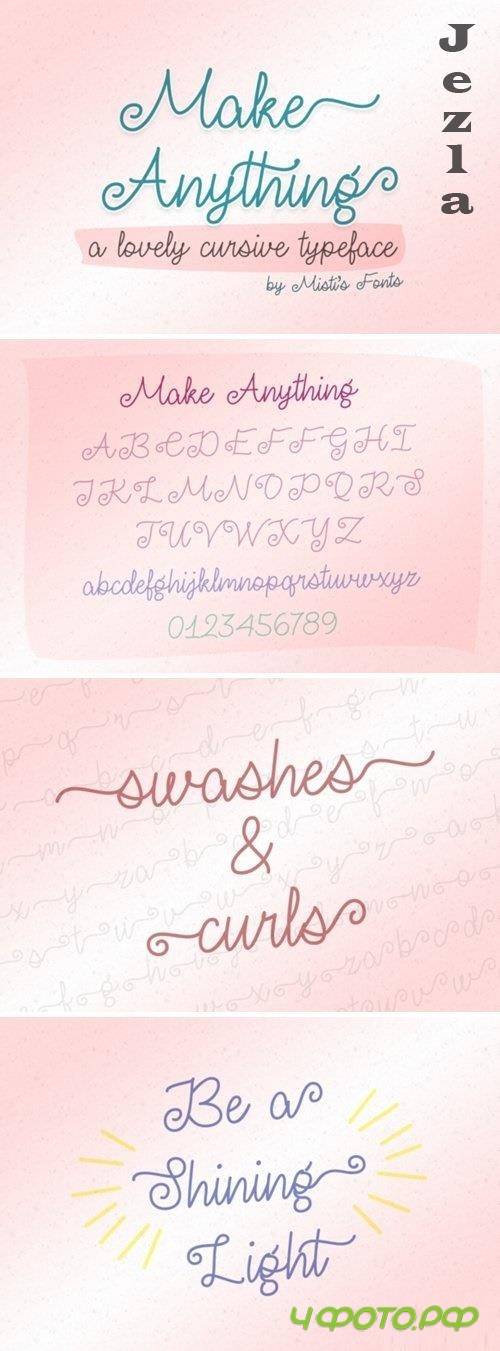 Make
Anything
a lovely cursive typeface
by Misti's Fonts
Jezla
Make Anything
ABCDEFFGHI
JKLMNOPQRS
TUVWXYZ
abcdefghijklmnopqrstuvwxyz
0123456789
swashes
&
curls
Be a
Shining
Light
ЧФОТО.РФ